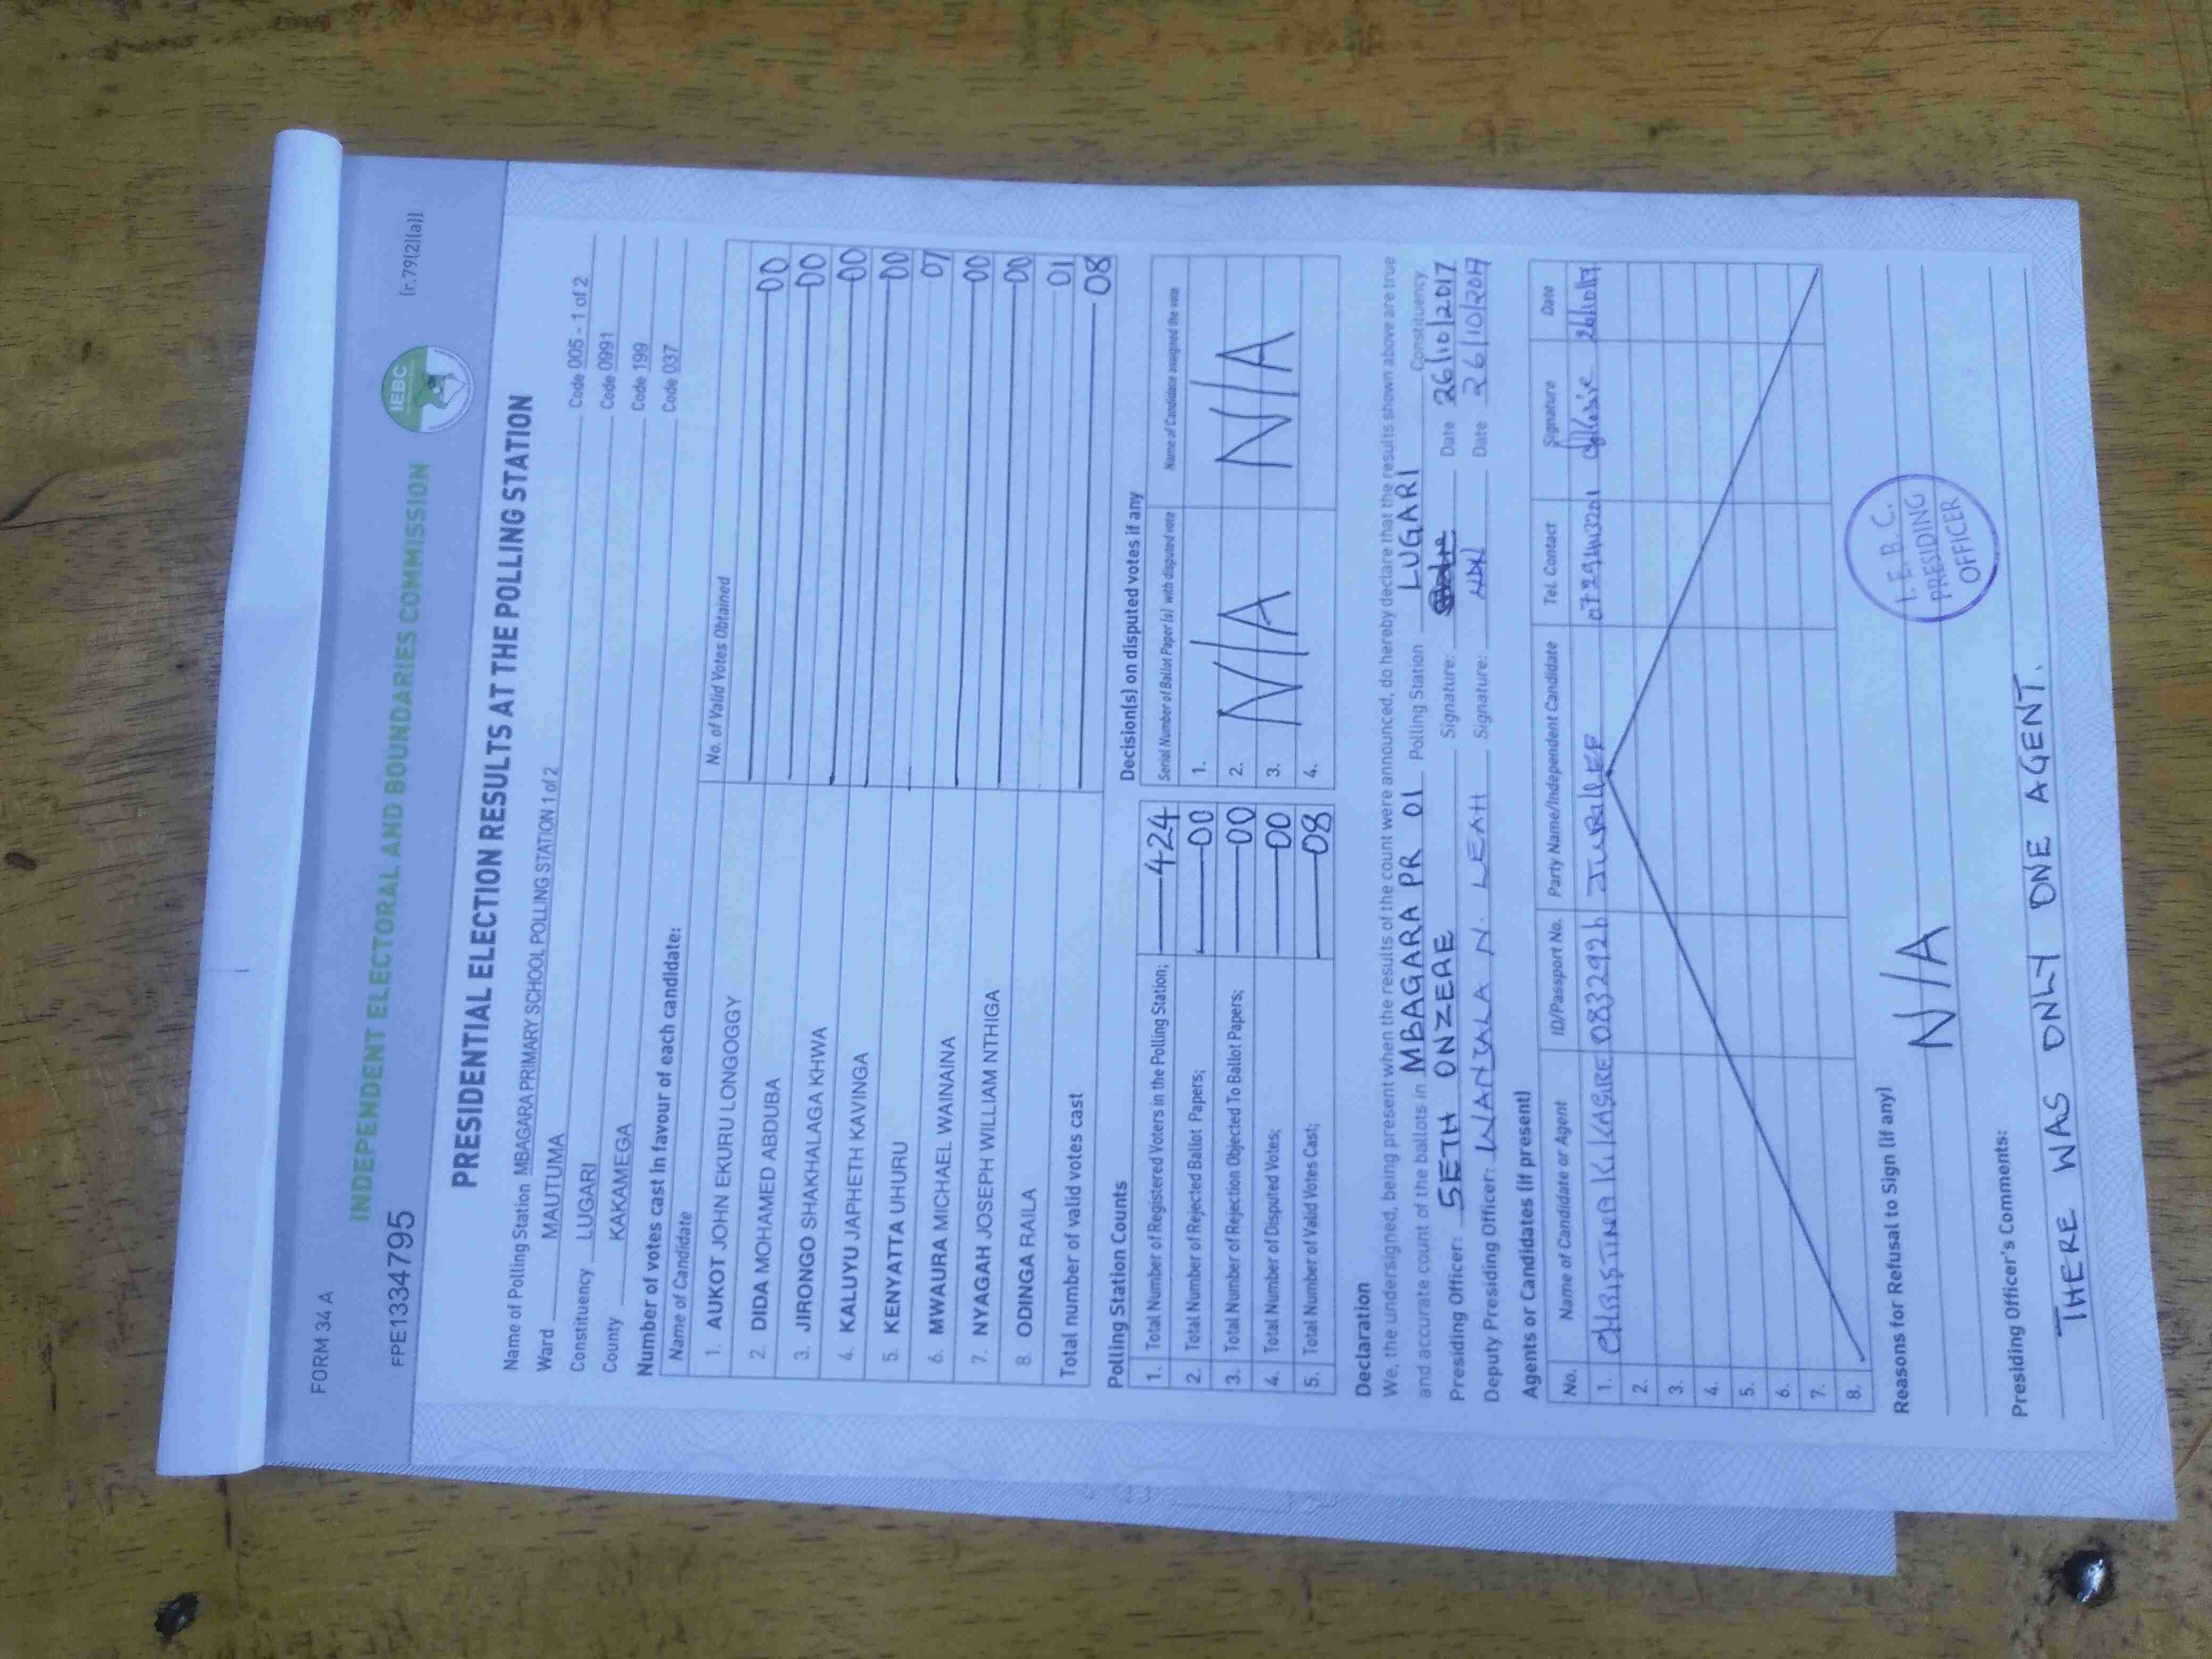 FORM 34 A
(r.79(2)(a))
FPE1334795
INDEPENDENT ELECTORAL AND BOUNDARIES COMMISSION
IEBC
PRESIDENTIAL ELECTION RESULTS AT THE POLLING STATION
Name of Polling Station MBAGARA PRIMARY SCHOOL POLLING STATION 1 of 2 Code 005 - 1 of 2
Ward MAUTUMA Code 0991
Constituency LUGARI Code 199
County KAKAMEGA Code 037
Number of votes cast in favour of each candidate:
Name of Candidate No. of Valid Votes Obtained
1. AUKOT JOHN EKURU LONGOGGY 00
2. DIDA MOHAMED ABDUBA 00
3. JIRONGO SHAKHALAGA KHWA 00
4. KALUYU JAPHETH KAVINGA 00
5. KENYATTA UHURU 07
6. MWAURA MICHAEL WAINAINA 00
7. NYAGAH JOSEPH WILLIAM NTHIGA 00
8. ODINGA RAILA 01
Total number of valid votes cast 08
Polling Station Counts
1. Total Number of Registered Voters in the Polling Station; 424
2. Total Number of Rejected Ballot Papers; 00
3. Total Number of Rejection Objected To Ballot Papers; 00
4. Total Number of Disputed Votes; 00
5. Total Number of Valid Votes Cast; 08
Decision(s) on disputed votes if any
Serial Number of Ballot Paper (s) with disputed vote Name of Candidate assigned the vote
1.
2. N/A N/A
3.
4.
Declaration
We, the undersigned, being present when the results of the count were announced, do hereby declare that the results shown above are true
and accurate count of the ballots in MBAGARA PR 01 Polling Station LUGARI Constituency
Presiding Officer: SETH ONZERE Signature: Date 26/10/2017
Deputy Presiding Officer: WANJALA N. LEAH Signature: Date 26/10/2017
Agents or Candidates (if present)
No. Name of Candidate or Agent ID/Passport No. Party Name/Independent Candidate Tel. Contact Signature Date
1. CHRISTINA K. KASIRE 0832926 JUBILEE
2.
3.
4.
5.
6.
7.
8.
Reasons for Refusal to Sign (if any)
N/A
I. E. B. C.
PRESIDING
OFFICER
Presiding Officer's Comments:
THERE WAS ONLY ONE AGENT.